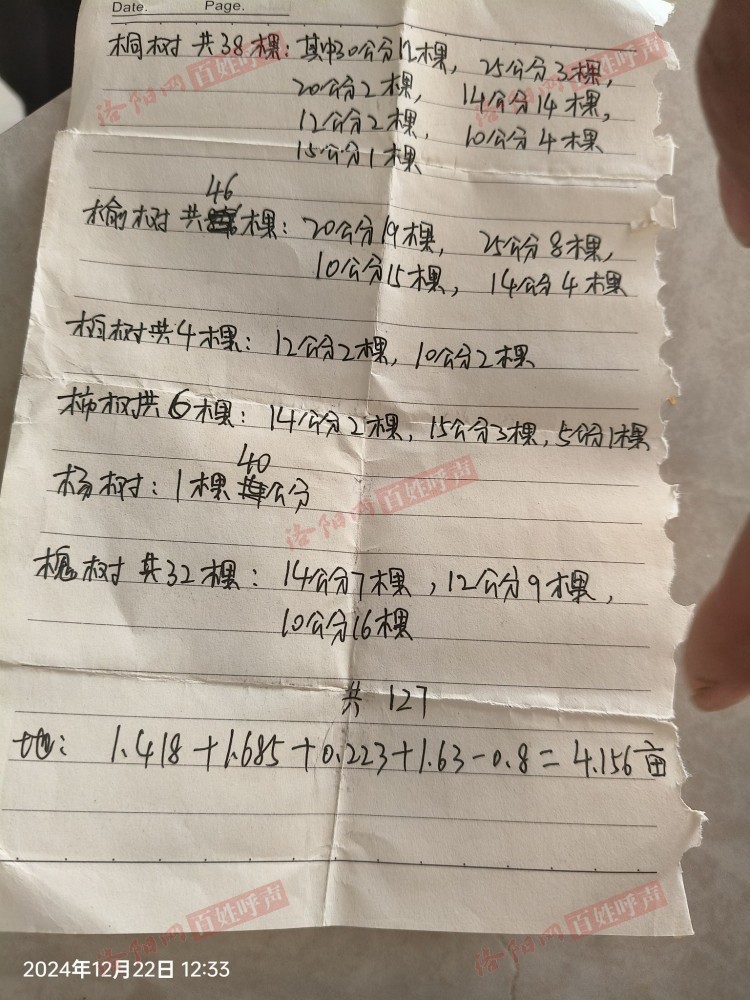 Date. Page.
桐树共38棵：其中30公分12棵，25公分3棵，
20公分2棵，14公分14棵，
12公分2棵，10公分4棵
15公分1棵
46
榆树共棵：20公分19棵，25公分8棵，
10公分15棵，14公分4棵
柏树共4棵：12公分2棵，10公分2棵
柿树共6棵：14公分2棵，15公分3棵，5公分1棵
40
杨树：1棵公分
槐树共32棵：14公分7棵，12公分9棵，
10公分16棵
共127
地：1.418+1.685+0.223+1.63-0.8=4.156亩
洛阳网百姓呼声
洛阳网百姓呼声
洛阳网百姓呼声
洛阳网百姓呼声
洛阳网百姓呼声
2024年12月22日 12:33